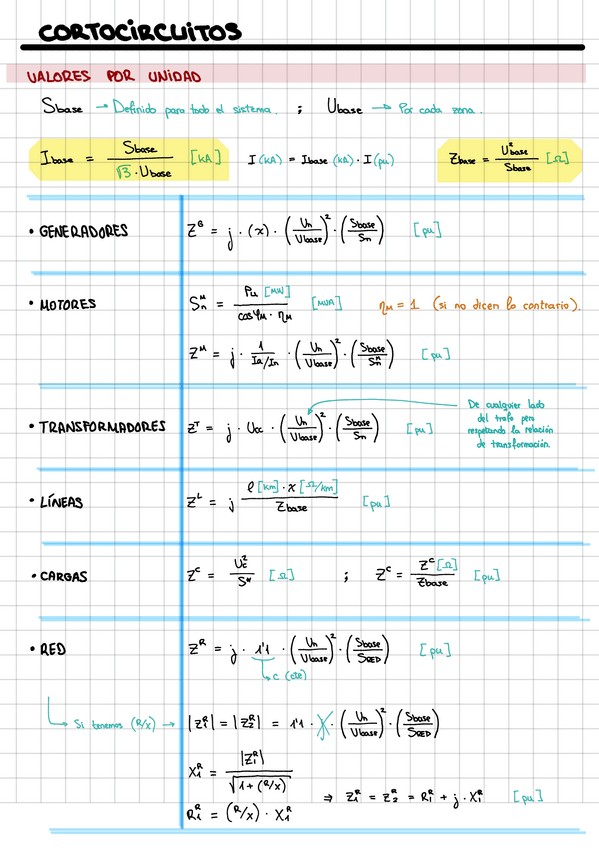 CORTOCIRCUITOS
VALORES POR UNIDAD
Sbase → Definido para todo el sistema. ; Ubase → Por cada zona.
Ibase = Sbase / (√3 · Ubase) [kA] I (kA) = Ibase (kA) · I (pu) Zbase = U²base / Sbase [Ω]
• GENERADORES Z^G = j · (x) · (Un / Ubase)² · (Sbase / Sn) [pu]
• MOTORES Sn^M = Pu [MW] / (cos φM · ηM) [MVA] ηM = 1 (si no dicen lo contrario).
Z^M = j · 1 / (Ia/In) · (Un / Ubase)² · (Sbase / Sn^M) [pu]
• TRANSFORMADORES Z^T = j · Ucc · (Un / Ubase)² · (Sbase / Sn) [pu]
De cualquier lado
del trafo pero
respetando la relación
de transformación.
• LÍNEAS Z^L = j ℓ [km] · x [Ω/km] / Zbase [pu]
• CARGAS Z^C = Uc² / S* [Ω] ; Z^C = Z^C [Ω] / Zbase [pu]
• RED Z^R = j · 1'1 · (Un / Ubase)² · (Sbase / SRED) [pu]
↳ c (cte)
↳ Si tenemos (R/X) → |Z1^R| = |Z2^R| = 1'1 · j · (Un / Ubase)² · (Sbase / SRED)
X1^R = |Z1^R| / √(1 + (R/X))
⇒ Z1^R = Z2^R = R1^R + j · X1^R [pu]
R1^R = (R/X) · X1^R